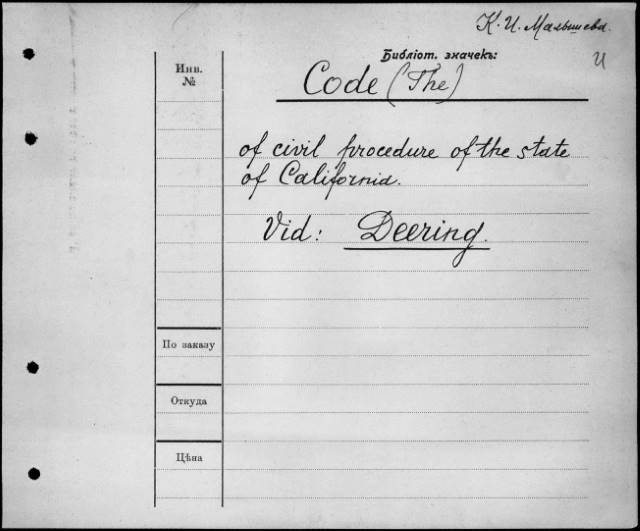 К. И. Малышева.
Библіот. значекъ:
И
Инв.
№
Code (The)
of civil procedure of the state
of California.
Vid: Deering.
По заказу
Откуда
Цѣна